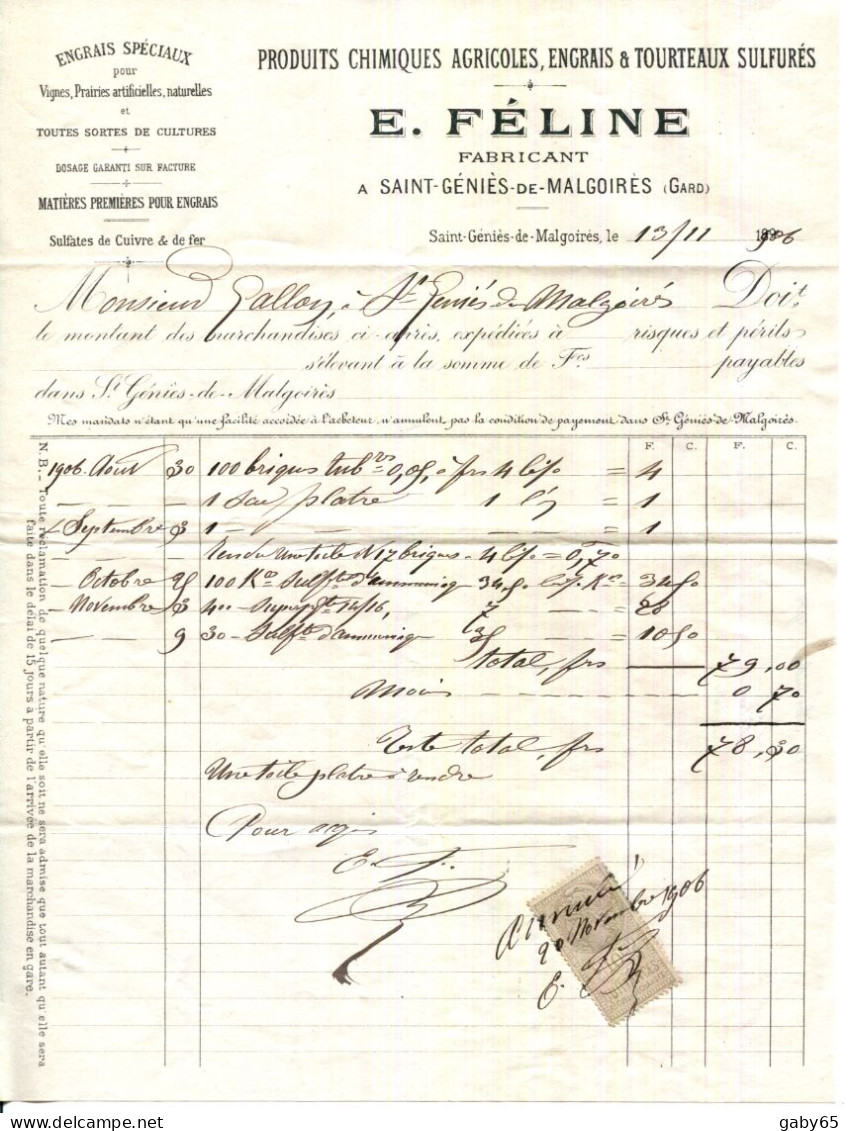 ENGRAIS SPÉCIAUX
pour
Vignes, Prairies artificielles, naturelles
et
TOUTES SORTES DE CULTURES
DOSAGE GARANTI SUR FACTURE
MATIÈRES PREMIÈRES POUR ENGRAIS
Sulfates de Cuivre & de fer
PRODUITS CHIMIQUES AGRICOLES, ENGRAIS & TOURTEAUX SULFURÉS
E. FÉLINE
FABRICANT
A SAINT-GÉNIÈS-DE-MALGOIRÈS (GARD)
Saint-Géniès-de-Malgoirès, le 13/11 1906
Monsieur Gallon, à St Geniés de Malgoirés Doit
le montant des marchandises ci-après, expédiées à risques et périls
s'élevant à la somme de Fcs payables
dans St Géniès-de-Malgoirès
Mes mandats n'étant qu'une facilité accordée à l'acheteur, n'annulent pas la condition de payement dans St Géniès-de-Malgoirès.
N. B. — Toute réclamation de quelque nature qu'elle soit ne sera admise que tout autant qu'elle sera
faite dans le délai de 15 jours à partir de l'arrivée de la marchandise en gare.
F. C. F. C.
1906 Août 30 100 briques tubres 0,05, à frs 4 = 4
— — 1 sac platre 1 = 1
Septembre 3 1 — — = 1
rendu une toile & 17 briques = 0,70
— Octobre 25 100 Kos Sulfte d'ammoniaq 34,50 = 34 50
— Novembre 3 400 — 14/16, 7 — = 28
9 30 — Sulfte d'ammoniaq 35 = 10 50
Total, frs — 79,00
Moins — 0 70
Reste total, frs 78,30
Une toile platre à rendre
Pour acquit
E. F.
Annulé
20 Novembre 1906
E. F.
gaby65